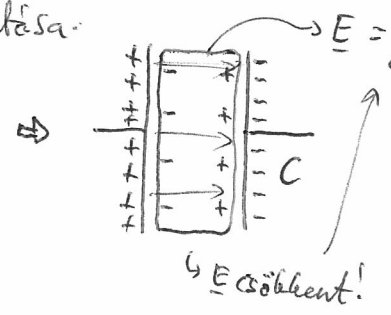 tása.
E =
C
↳ E csökkent!